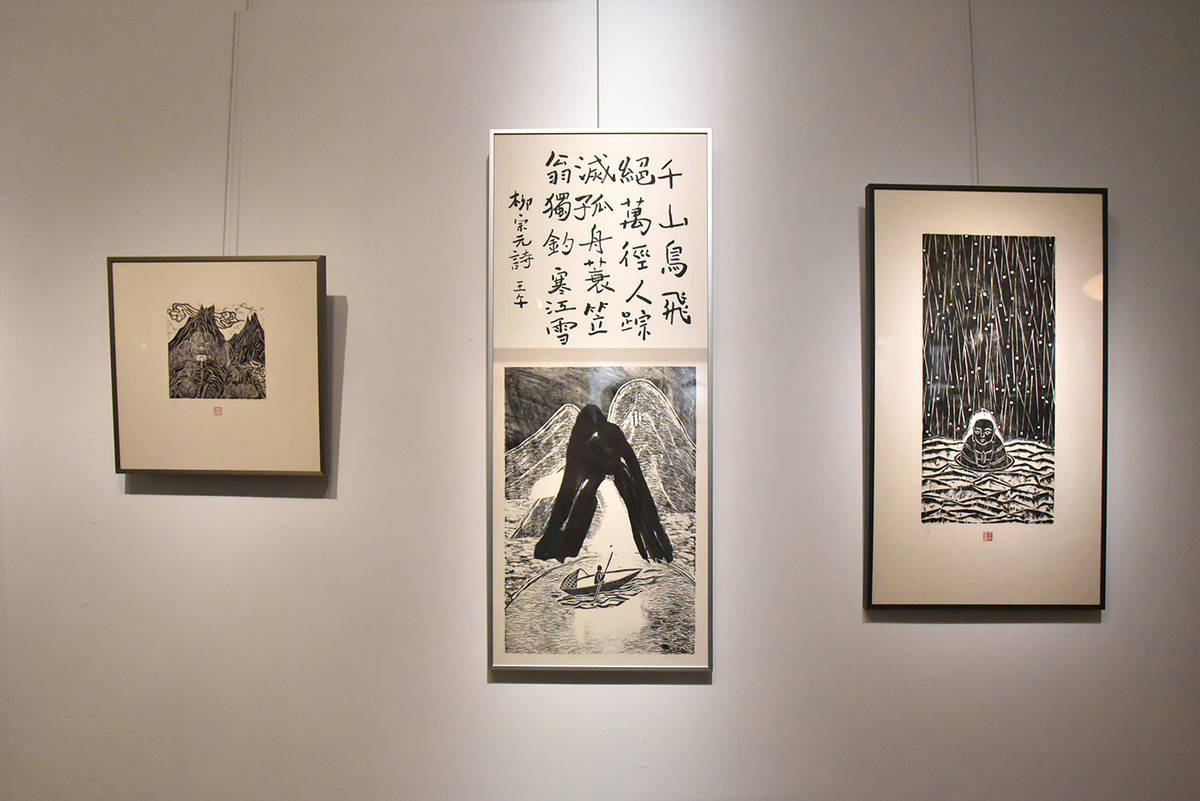 千山鳥飛
絕萬徑人踪
滅孤舟蓑笠
翁獨釣寒江雪
柳宗元詩 壬午